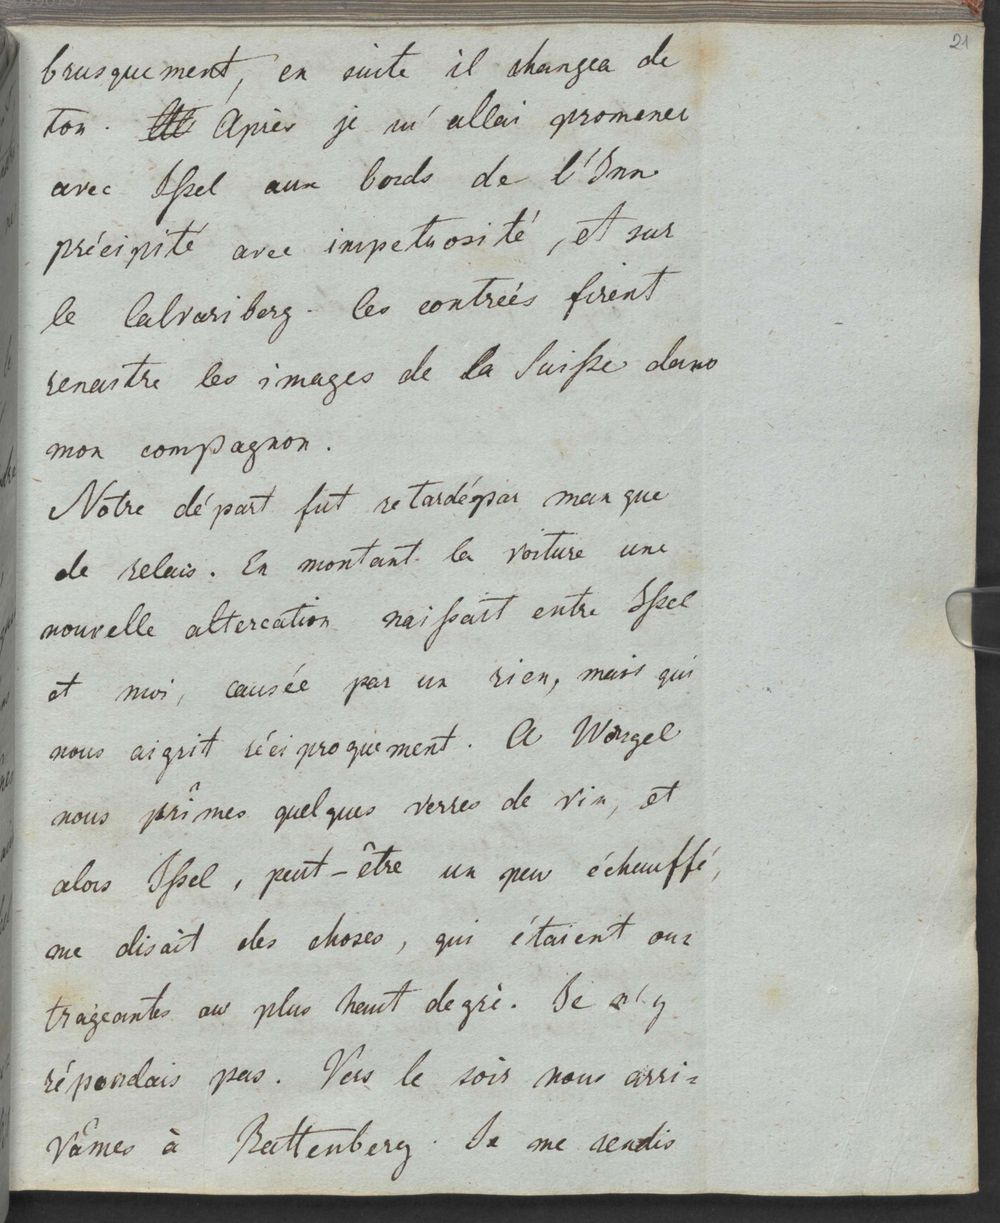 21
brusquement, en suite il changea de
ton. Après je m'allai promener
avec Issel aux bords de l'Inn
précipité avec impetuosité, et sur
le Calvariberg. les contreés firent
renaitre les images de la Suisse dans
mon compagnon.
Notre départ fut retardé par manque
de relais. En montant la voiture une
nouvelle altercation naissait entre Issel
et moi, causée par un rien, mais qui
nous aigrit réciproquement. A Worgel
nous prîmes quelques verres de vin, et
alors Issel, peut-être un peu échauffé,
me disait des choses, qui étaient ou=
trageantes au plus haut degrè. Je n'y
répondais pas. Vers le soir nous arri=
vâmes à Rattenberg. Je me rendis